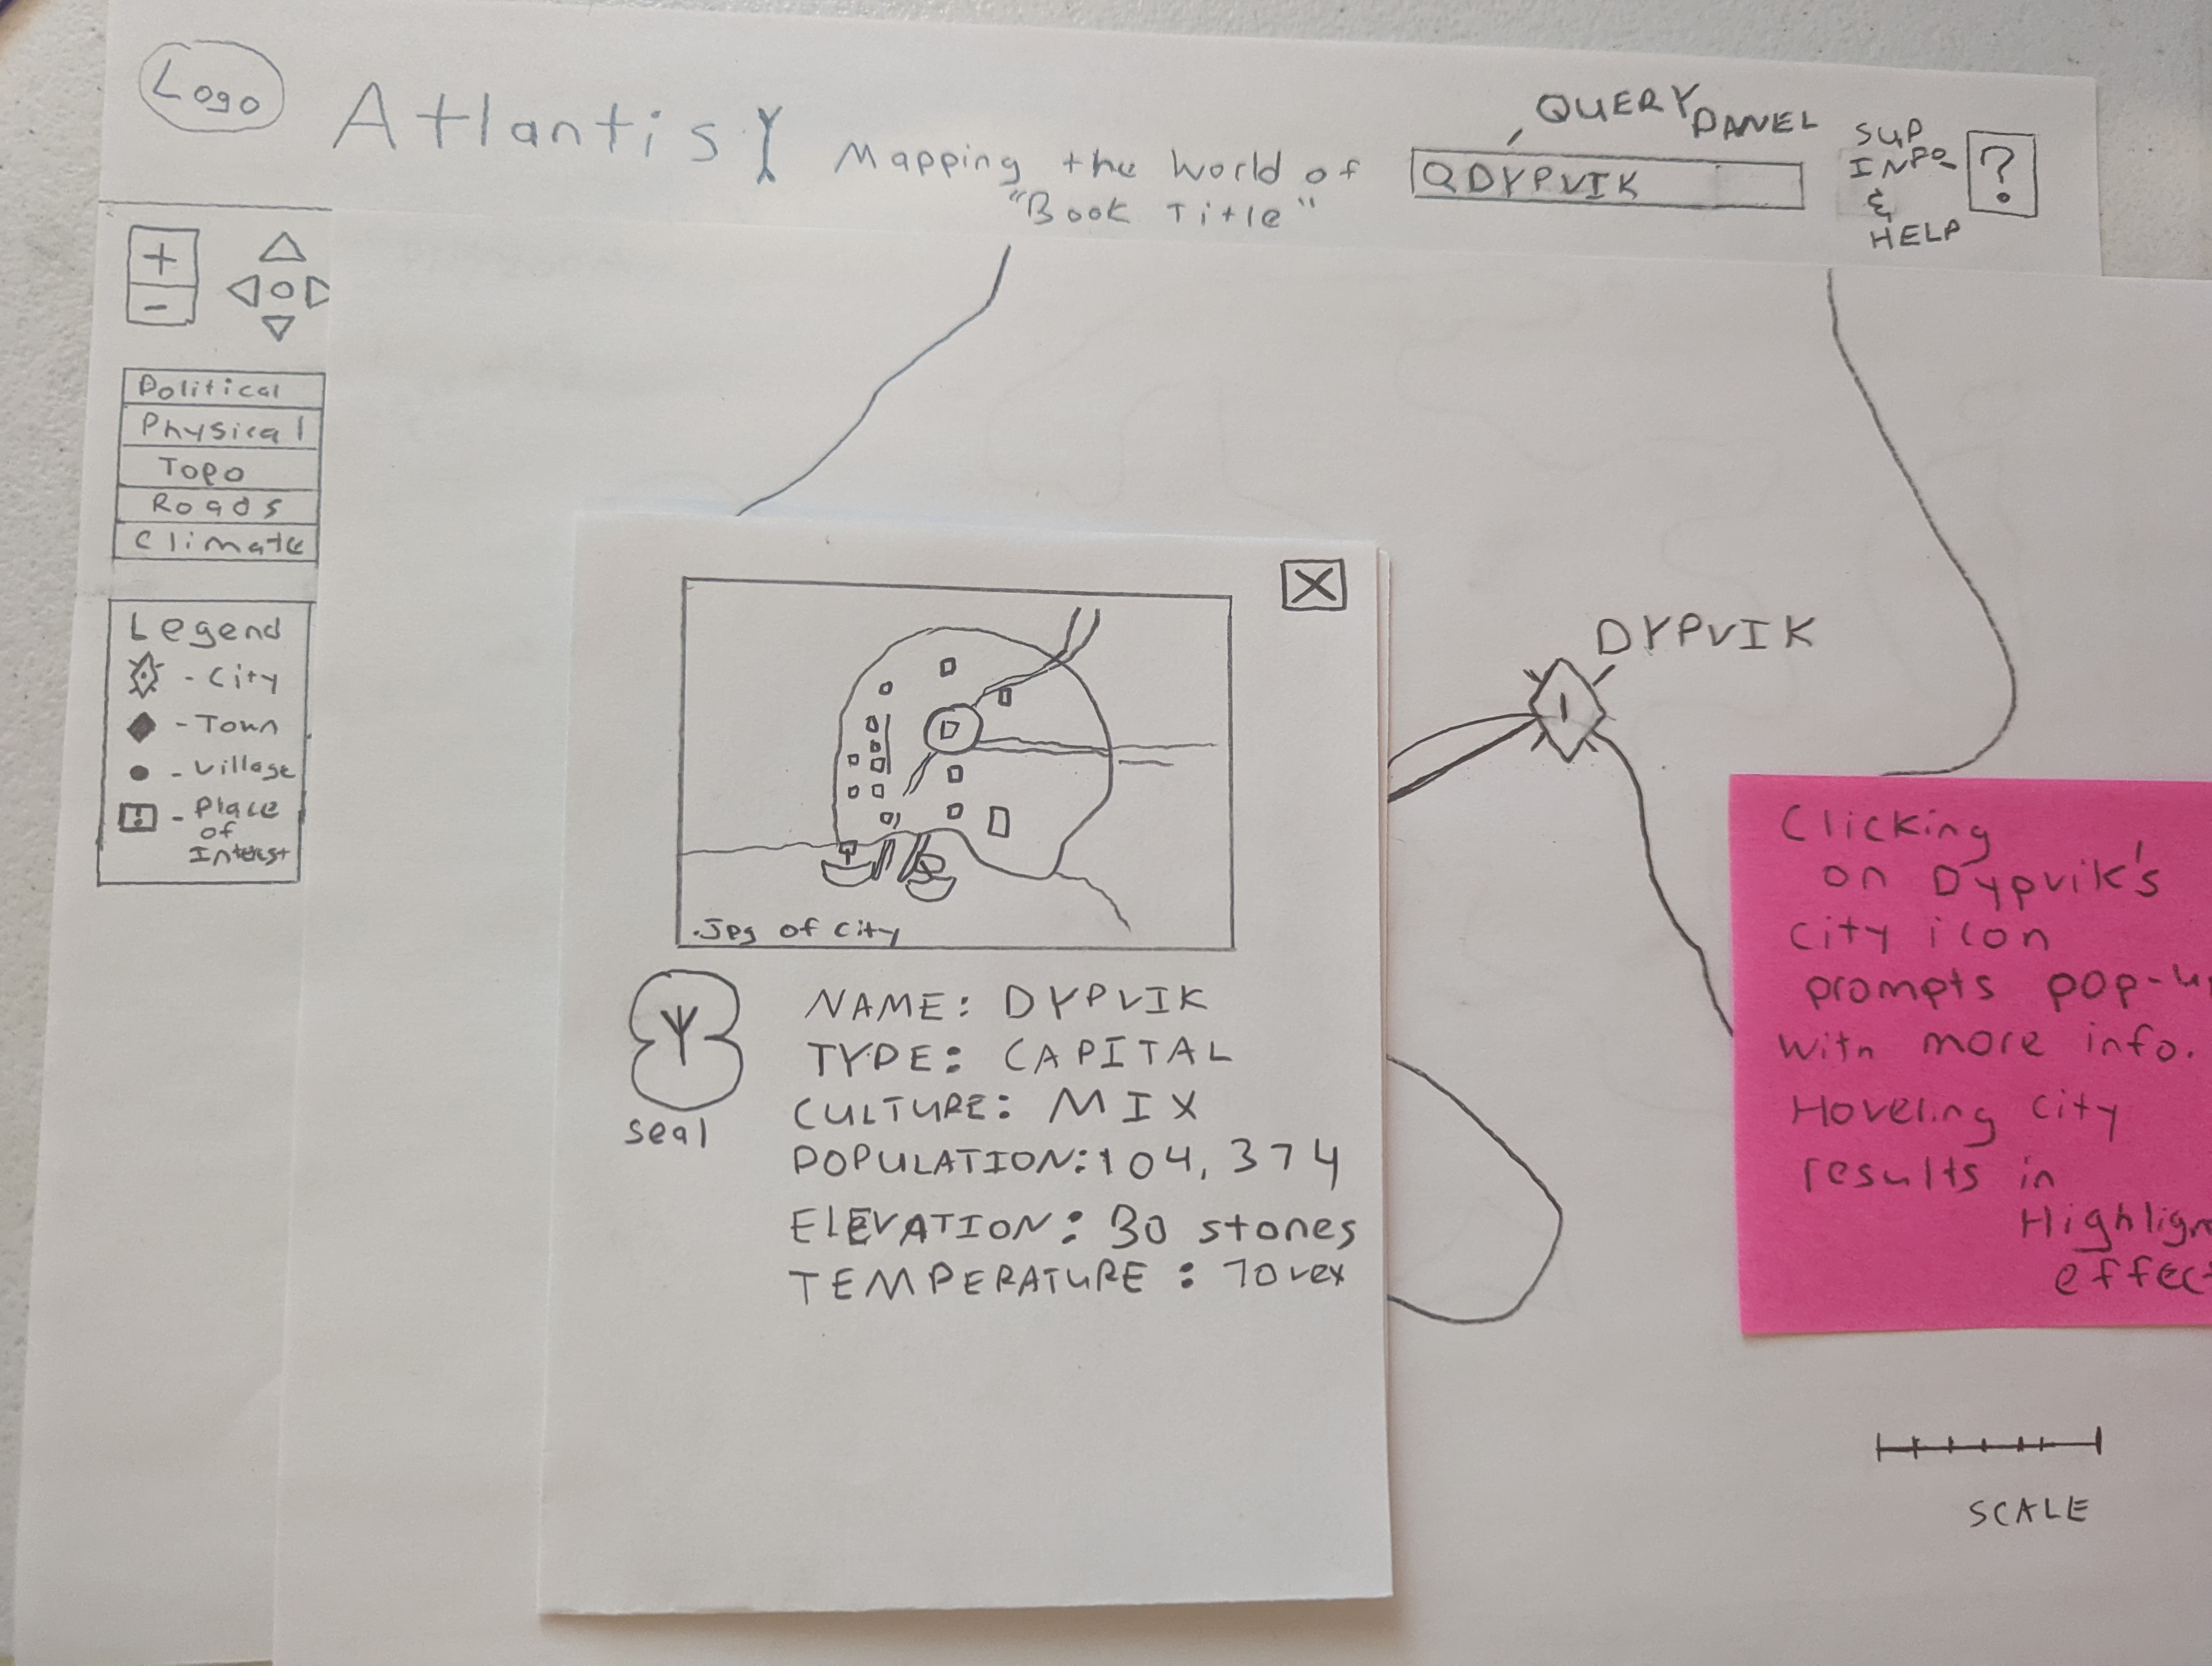 Logo
Atlantis
Mapping the World of
"Book Title"
QUERY PANEL
DYPVIK
SUP
INFO
&
HELP
?
+
-
Political
Physical
Topo
Roads
Climate
Legend
- City
- Town
- Village
- Place
of
Interest
X
.Jpg of city
seal
NAME: DYPVIK
TYPE: CAPITAL
CULTURE: MIX
POPULATION: 104,374
ELEVATION: 30 stones
TEMPERATURE: 70 vex
DYPVIK
Clicking
on Dypvik's
city icon
prompts pop-up
with more info.
Hovering city
results in
Highligh
effect
SCALE